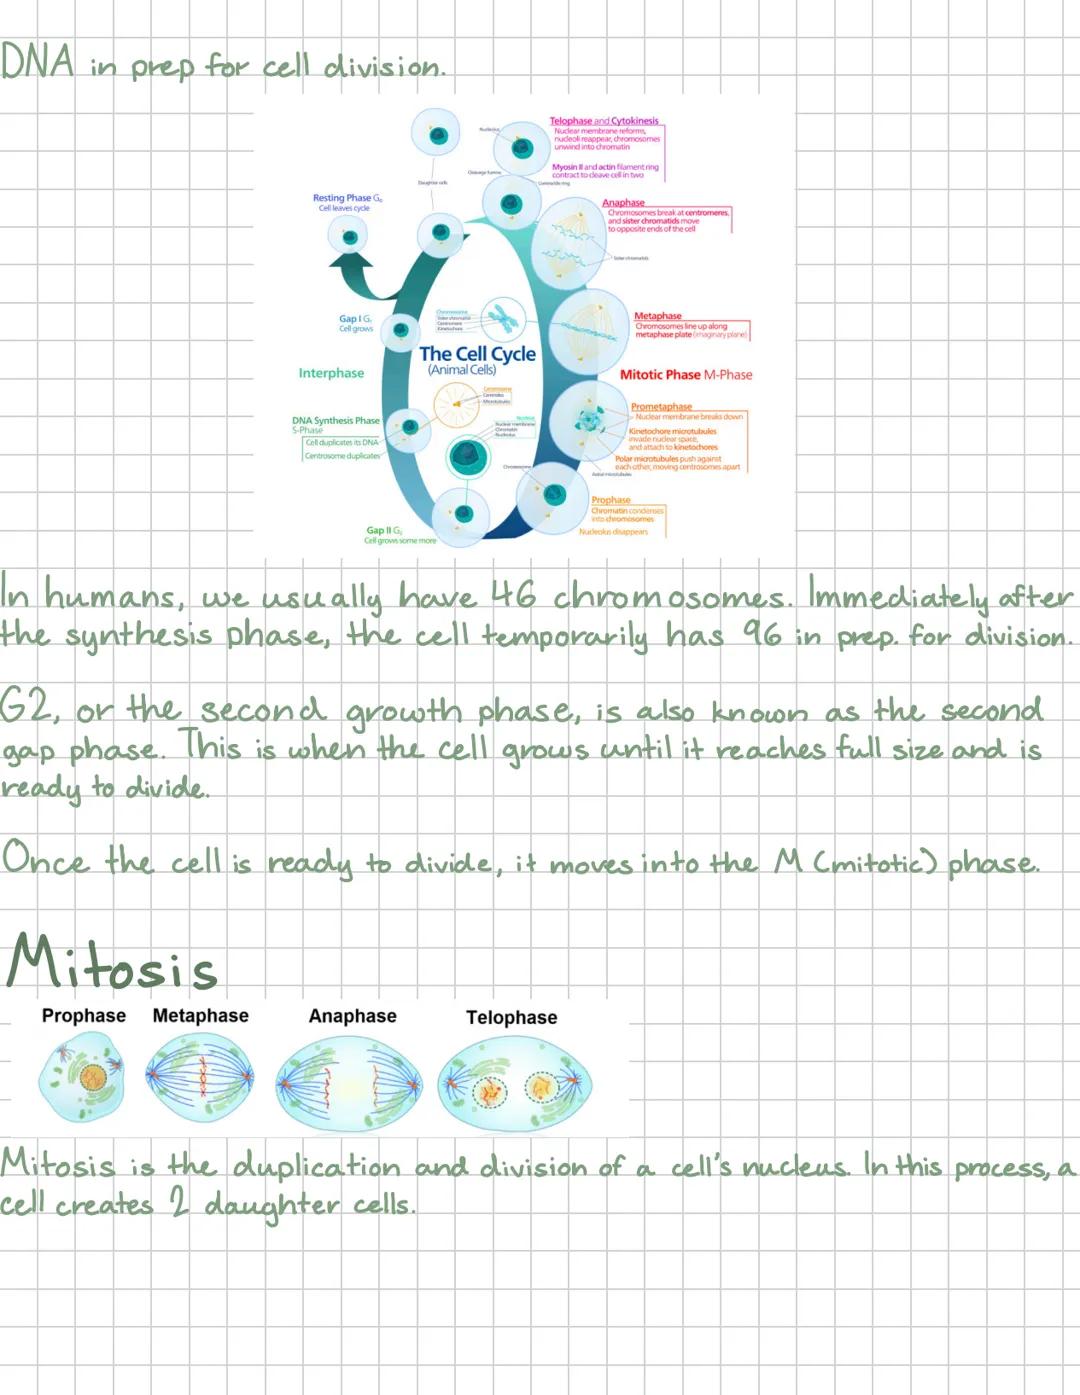 DNA in prep for cell division.
Telophase and Cytokinesis
Nuclear membrane reforms,
nucleoli reappear, chromosomes
unwind into chromatin
Nucleolus
Myosin II and actin filament ring
contract to cleave cell in two
Cleavage furrow
Daughter cells
Contractile ring
Resting Phase G₀
Cell leaves cycle
Anaphase
Chromosomes break at centromeres,
and sister chromatids move
to opposite ends of the cell
Sister chromatids
Gap I G₁
Cell grows
Chromosome
Sister chromatid
Centromere
Kinetochore
Metaphase
Chromosomes line up along
metaphase plate (imaginary plane)
The Cell Cycle
(Animal Cells)
Interphase
Mitotic Phase M-Phase
Centrosome
Centrioles
Microtubules
Prometaphase
Nuclear membrane breaks down
Kinetochore microtubules
invade nuclear space,
and attach to kinetochores
Polar microtubules push against
each other, moving centrosomes apart
Astral microtubules
DNA Synthesis Phase
S-Phase
Cell duplicates its DNA
Centrosome duplicates
Nucleus
Nuclear membrane
Chromatin
Nucleolus
Chromosome
Prophase
Chromatin condenses
into chromosomes
Nucleolus disappears
Gap II G₂
Cell grows some more
In humans, we usually have 46 chromosomes. Immediately after
the synthesis phase, the cell temporarily has 96 in prep. for division.
G2, or the second growth phase, is also known as the second
gap phase. This is when the cell grows until it reaches full size and is
ready to divide.
Once the cell is ready to divide, it moves into the M (mitotic) phase.
Mitosis
Prophase Metaphase Anaphase Telophase
Mitosis is the duplication and division of a cell's nucleus. In this process, a
cell creates 2 daughter cells.